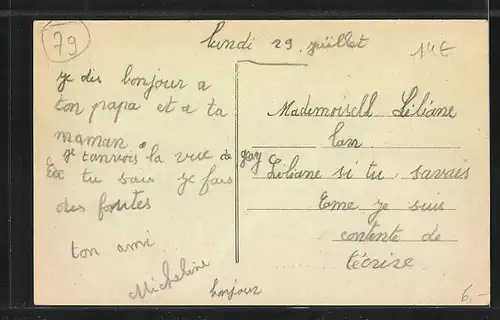 79
lundi 29 juillet
14 €
je dis bonjour a
ton papa et a ta
maman.
je t'anvois la vue de gay
tu sau je fais
des fautes
ton ami
Micheline
bonjour
Mademoiselle Liliane
Lan
Liliane si tu savais
come je suis
contente de
t'écrire
6.-